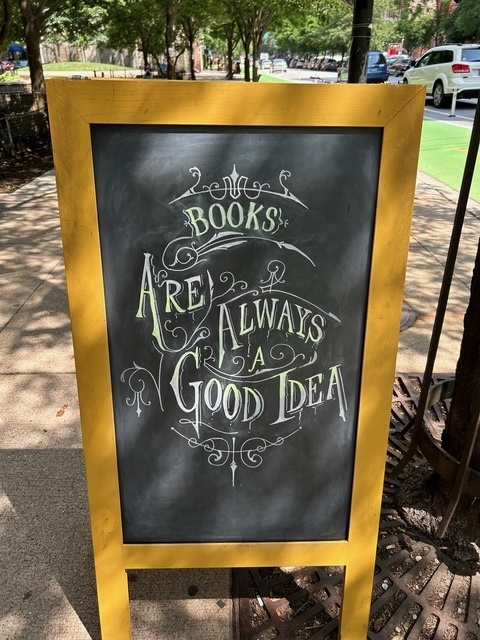 BOOKS
ARE
ALWAYS
A
GOOD IDEA